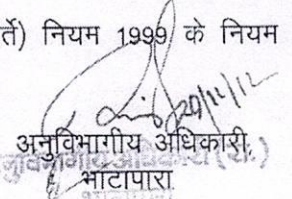 र्ते) नियम 1999 के नियम
20/11/12
अनुविभागीय अधिकारी,
अनुविभागीय अधिकारी (रा.)
भाटापारा